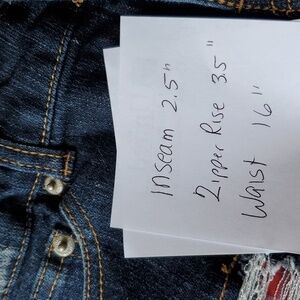 Inseam 2.5"
Zipper Rise 3.5"
Waist 16"